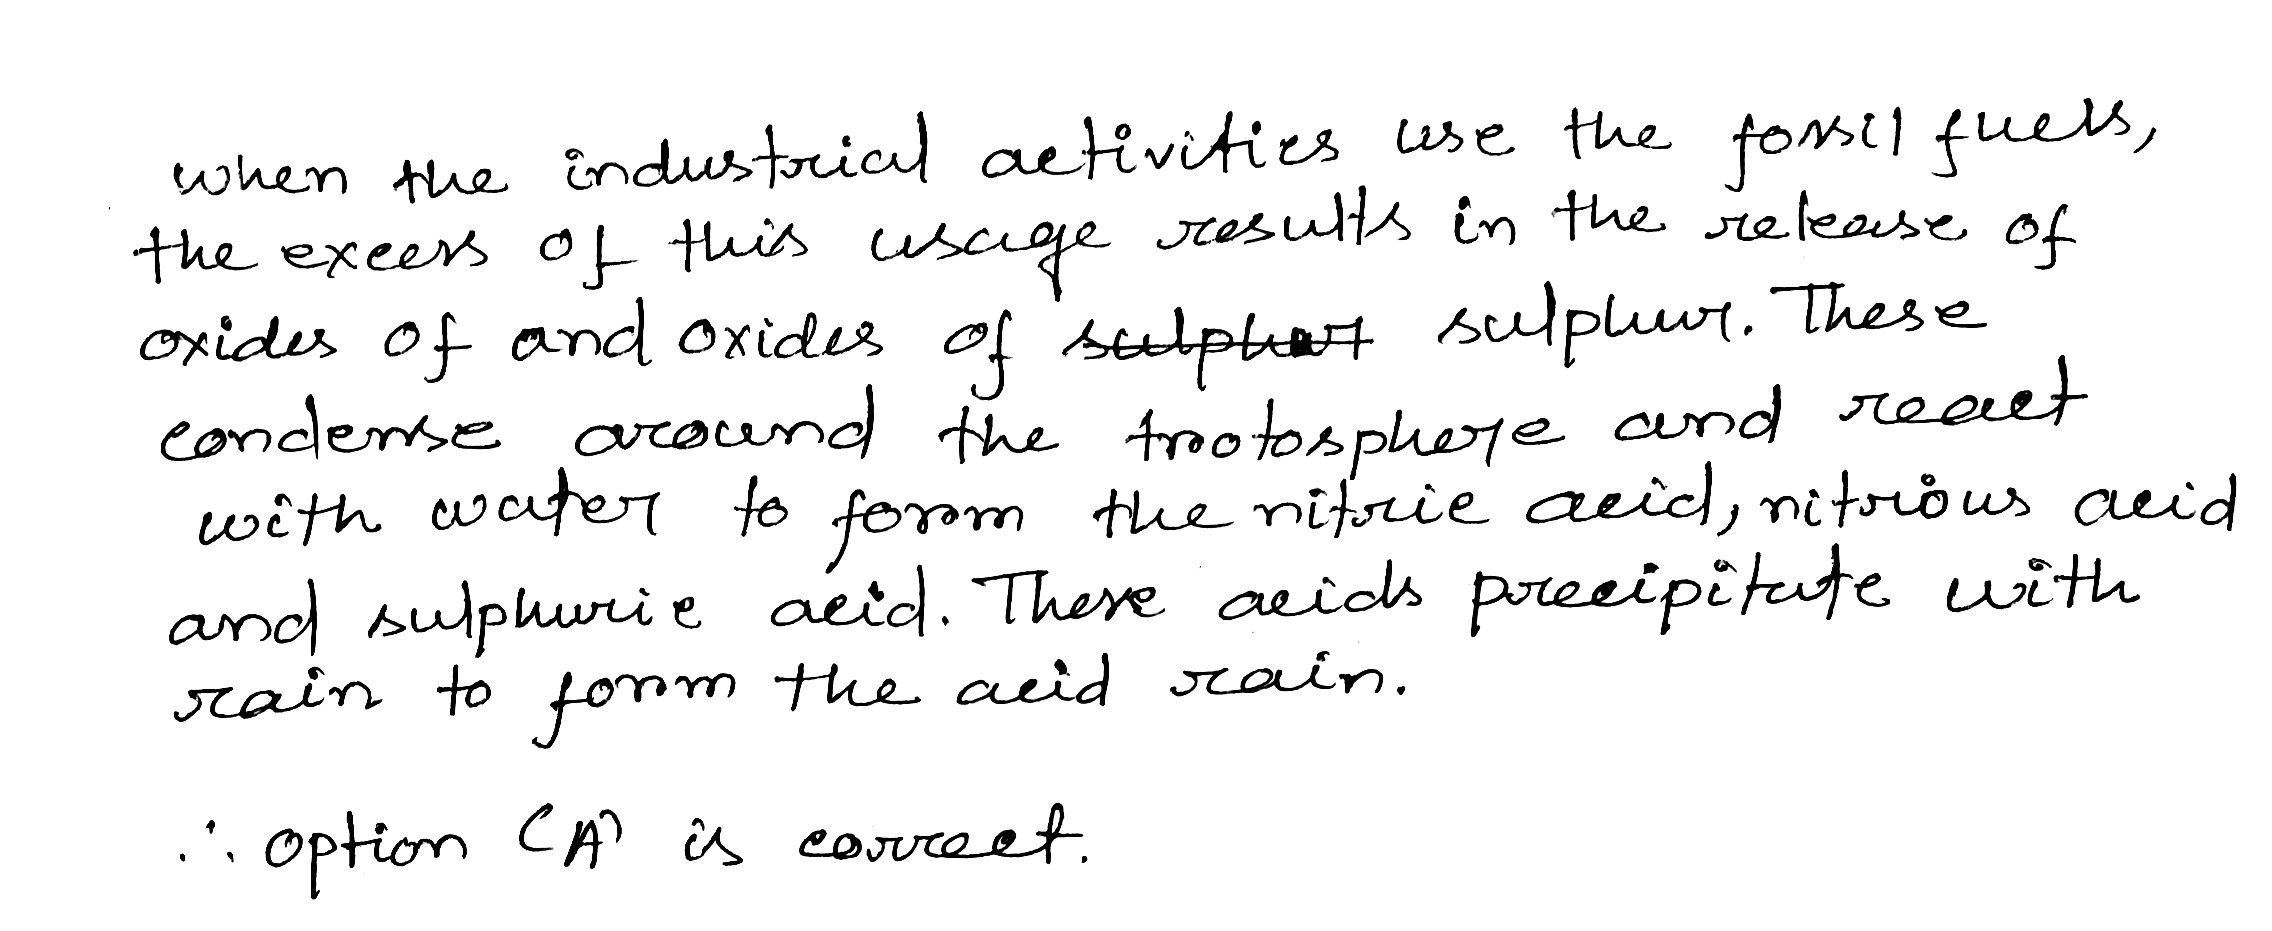 when the industrial activities use the fossil fuels,
the excess of this usage results in the release of
oxides of and oxides of sulphur sulphur. These
condense around the trotosphere and react
with water to form the nitric acid, nitrious acid
and sulphuric acid. These acids precipitate with
rain to form the acid rain.
∴ option (A) is correct.